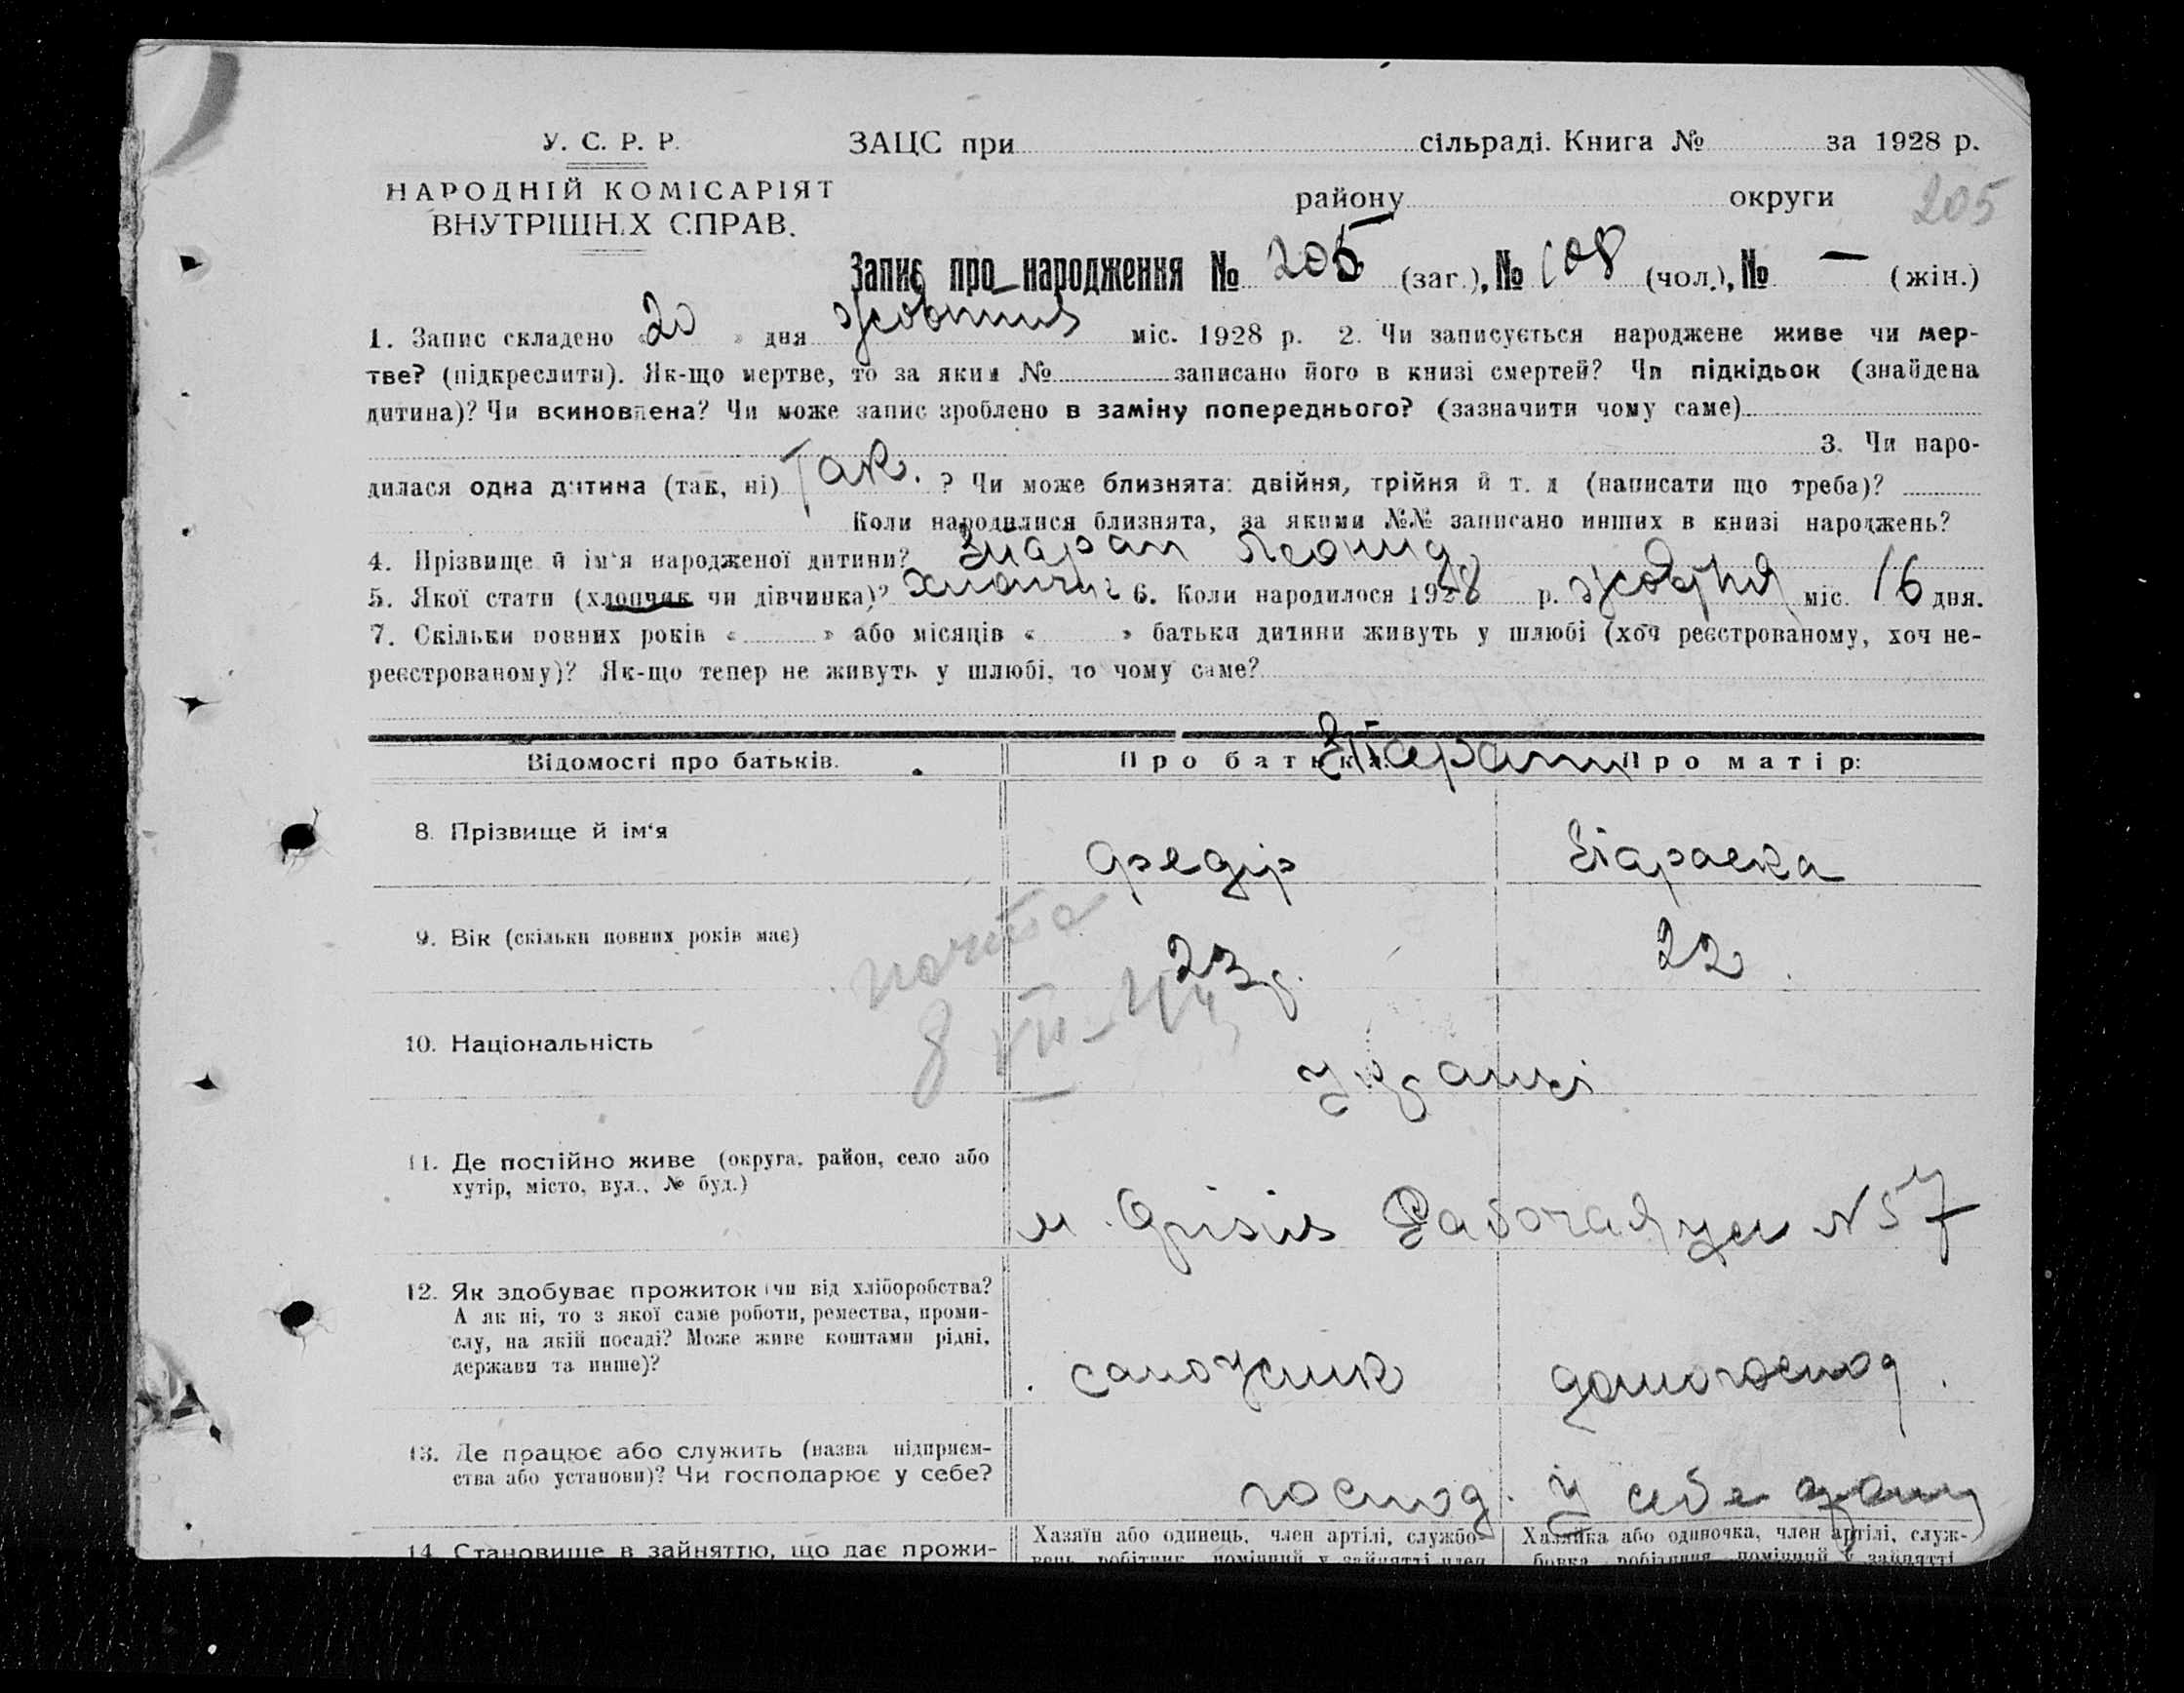 У. С. Р. Р.
ЗАЦС при сільраді. Книга № за 1928 р.
НАРОДНІЙ КОМІСАРІЯТ
ВНУТРІШН.Х СПРАВ.
району округи 205
Запис про народження № 205 (заг.), № 108 (чол.), № — (жін.)
1. Запис складено «20» дня жовтня міс. 1928 р. 2. Чи записується народжене живе чи мер-
тве? (підкреслити). Як-що мертве, то за яким № записано його в книзі смертей? Чи підкідьок (знайдена
дитина)? Чи всиновлена? Чи може запис зроблено в заміну попереднього? (зазначити чому саме)
3. Чи наро-
дилася одна дитина (так, ні) Так. ? Чи може близнята: двійня, трійня й т. д (написати що треба)?
Коли народилися близнята, за якими №№ записано инших в книзі народжень?
4. Прізвище й ім'я народженої дитини? Леонид
5. Якої стати (хлопчик чи дівчинка)? хлопчик 6. Коли народилося 1928 р. жовтня міс. 16 дня.
7. Скільки повних років « » або місяців « » батьки дитини живуть у шлюбі (хоч реєстрованому, хоч не-
реєстрованому)? Як-що тепер не живуть у шлюбі, то чому саме?
Відомості про батьків. Про батька: Про матір:
8. Прізвище й ім'я Федір Параска
9. Вік (скільки повних років має) 23 р. 22
10. Національність
11. Де постійно живе (округа, район, село або
хутір, місто, вул., № буд.)
м. Рабочая ул №57
12. Як здобуває прожиток (чи від хліборобства?
А як ні, то з якої саме роботи, ремества, проми-
слу, на якій посаді? Може живе коштами рідні,
держави та инше)?
сапожник домогоспод.
13. Де працює або служить (назва підприєм-
ства або установи)? Чи господарює у себе?
господ. у себе дому
14. Становище в зайняттю, що дає прожи-
Хазяїн або одинець, член артілі, службо-
вець, робітник, помічний у зайнятті член
Хазяйка або одиночка, член артілі, служ-
бовка, робітниця, помічний у зайнятті